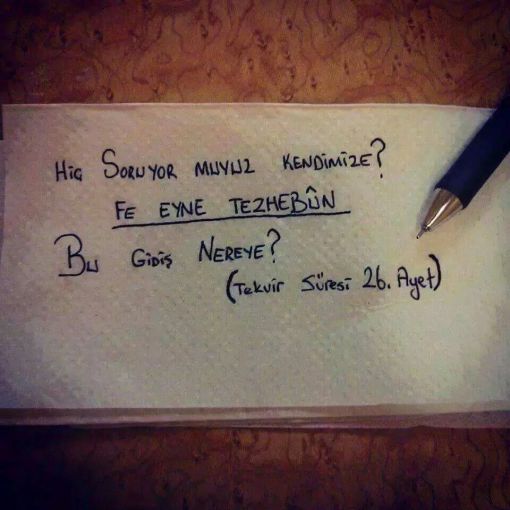 Hiç Soruyor muyuz kendimize?
Fe eyne tezhebûn
Bu gidiş nereye?
(Tekvir Sûresi 26. Ayet)